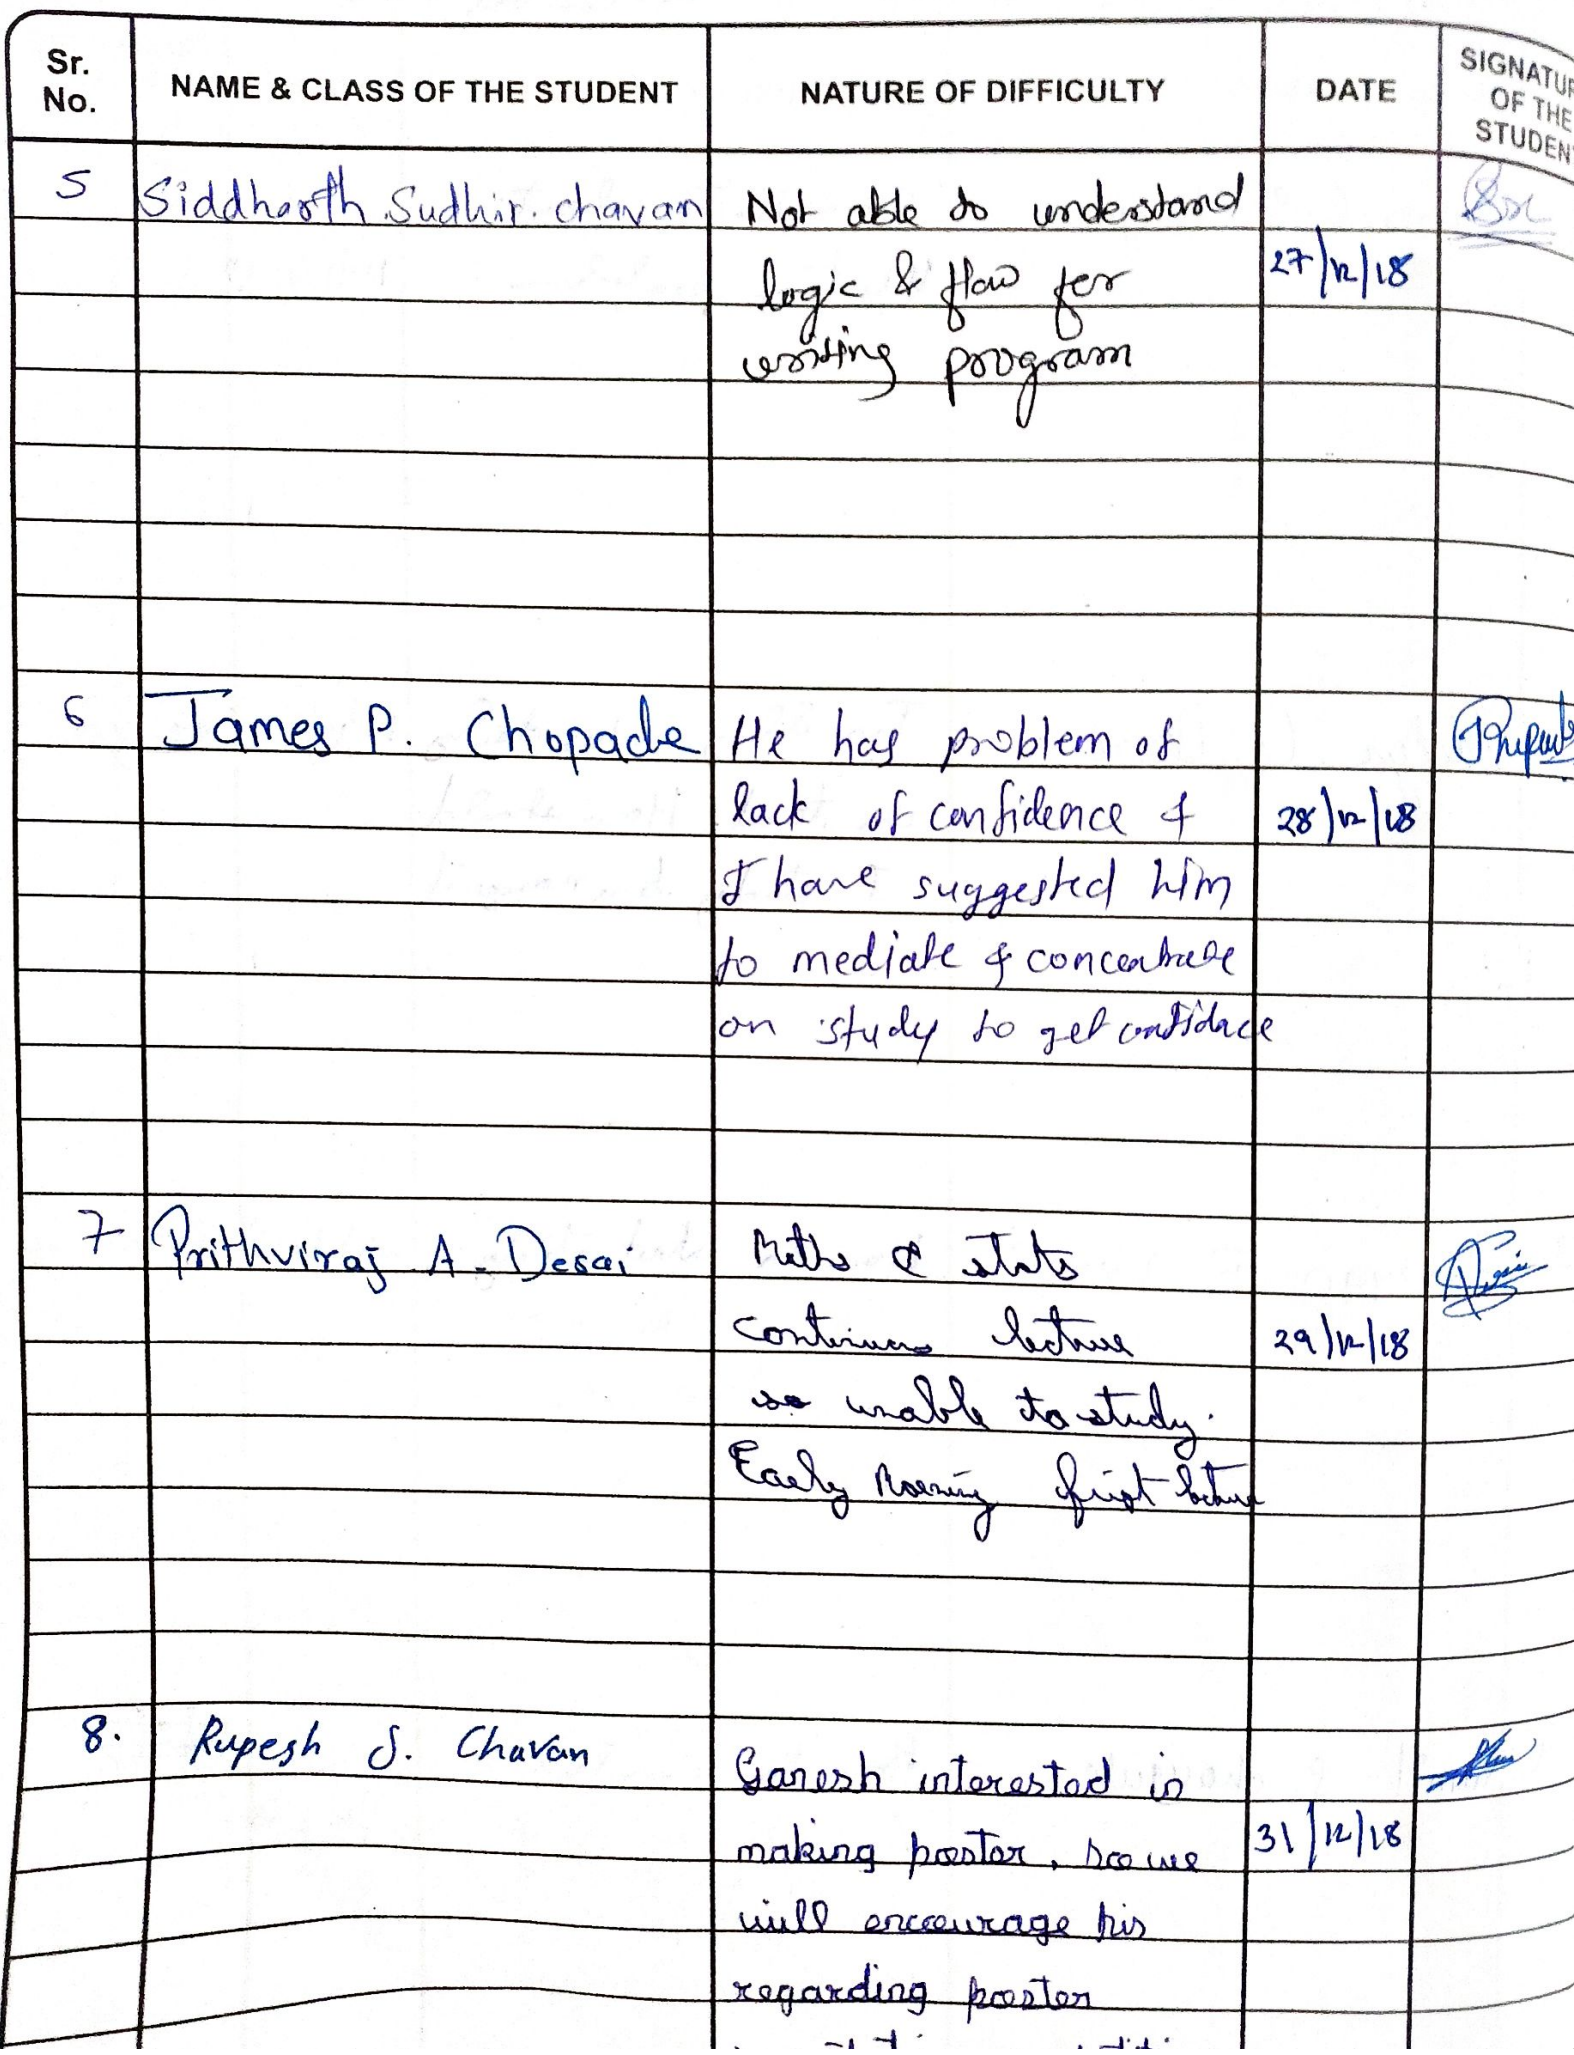 Sr. No.
NAME & CLASS OF THE STUDENT
NATURE OF DIFFICULTY
DATE
SIGNATUR
OF THE
STUDEN
5 Siddharth Sudhir. chavan Not able to understand
logic & flow for 27/12/18
writing program
6 James P. Chopade He has problem of
lack of confidence & 28/12/18
I have suggested him
to mediate & concentrate
on study to get confidace
7 Prithviraj A. Desai Maths & stats
continuous lecture 29/12/18
so unable to study.
Early Morning first lecture
8. Rupesh S. Chavan Ganesh interested in
making poster, so we 31/12/18
will encourage his
regarding poster